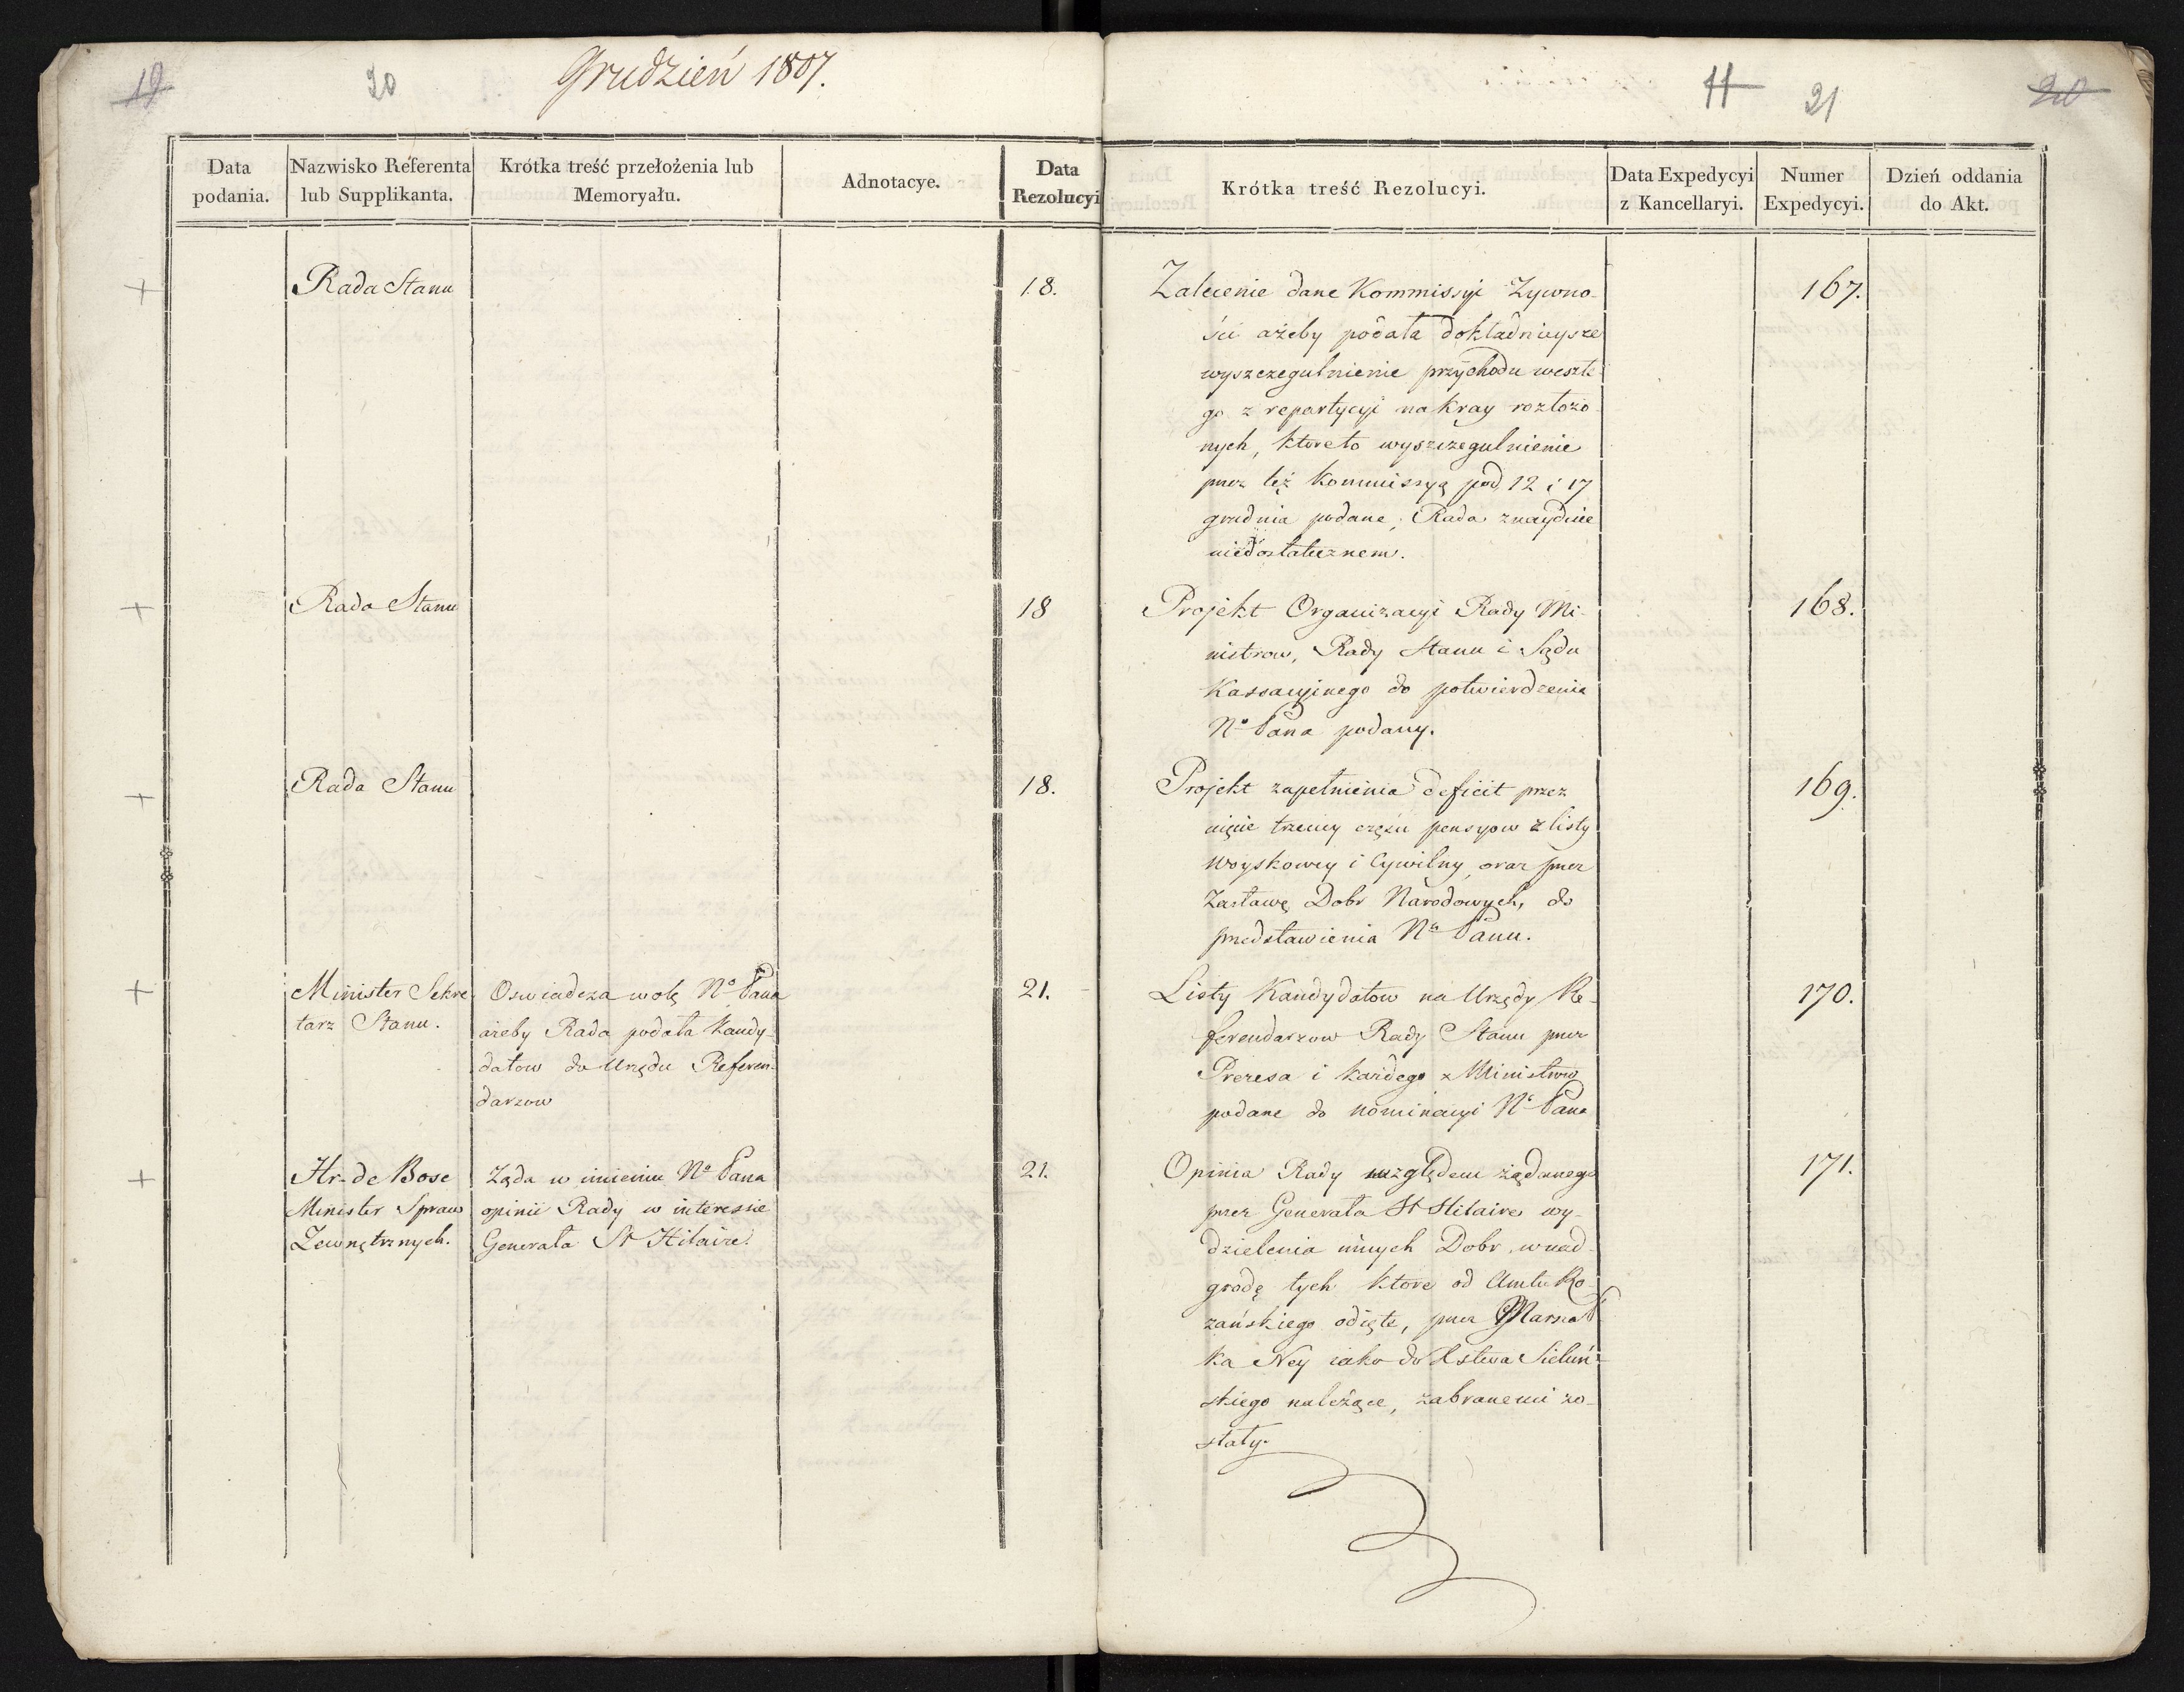 19
20
Grudzień 1807.
11
21
20
Data podania.
Nazwisko Referenta lub Supplikanta.
Krótka treść przełożenia lub Memoryału.
Adnotacye.
Data Rezolucyi
Krótka treść Rezolucyi.
Data Expedycyi z Kancellaryi.
Numer Expedycyi.
Dzień oddania do Akt.
+
Rada Stanu
18.
Zalecenie dane Kommissyi Zywno-
167.
ści ażeby podała dokładnieysze
wyszczegulnienie przychodu weszłe-
go z repartycyi na Kray rozłożo-
nych, ktoreto wyszczegulnienie
przez tęż Kommissyą pod 12 i 17
grudnia podane, Rada znayduie
niedostatecznem.
+
Rada Stanu
18
Projekt Organizacyi Rady Mi-
168.
nistrow, Rady Stanu i Sądu
Kassacyjnego do potwierdzenia
No Pana podany.
+
Rada Stanu
18.
Projekt zapełnienia deficit przez
169.
cięcie trzeciey części pensyow z listy
Woyskowey i Cywilney, oraz przez
Zastawę Dobr Narodowych, do
przedstawienia Nu Panu.
+
Minister Sekre
tarz Stanu.
Oswiadcza wolę No Pana
ażeby Rada podała Kandy-
datow do Urzędu Referen-
darzow
21.
Listy Kandydatow na Urzędy Re-
170.
ferendarzow Rady Stanu przez
Prezesa i każdego z Ministrow
podane do nominacyi No Pana
+
Hr. de Bose
Minister Spraw
Zewnętrznych.
Ząda w imieniu No Pana
opinii Rady w interessie
Generała St Hilaire.
21.
Opinia Rady względem żądanego
171.
przez Generała St Hilaire wy-
dzielenia innych Dobr, w nad-
grodę tych ktore od Amtu Ro-
zańskiego odięte, przez Marszał
ka Ney iako do Xstwa Sieluń-
skiego należące, zabranemi zo-
stały.